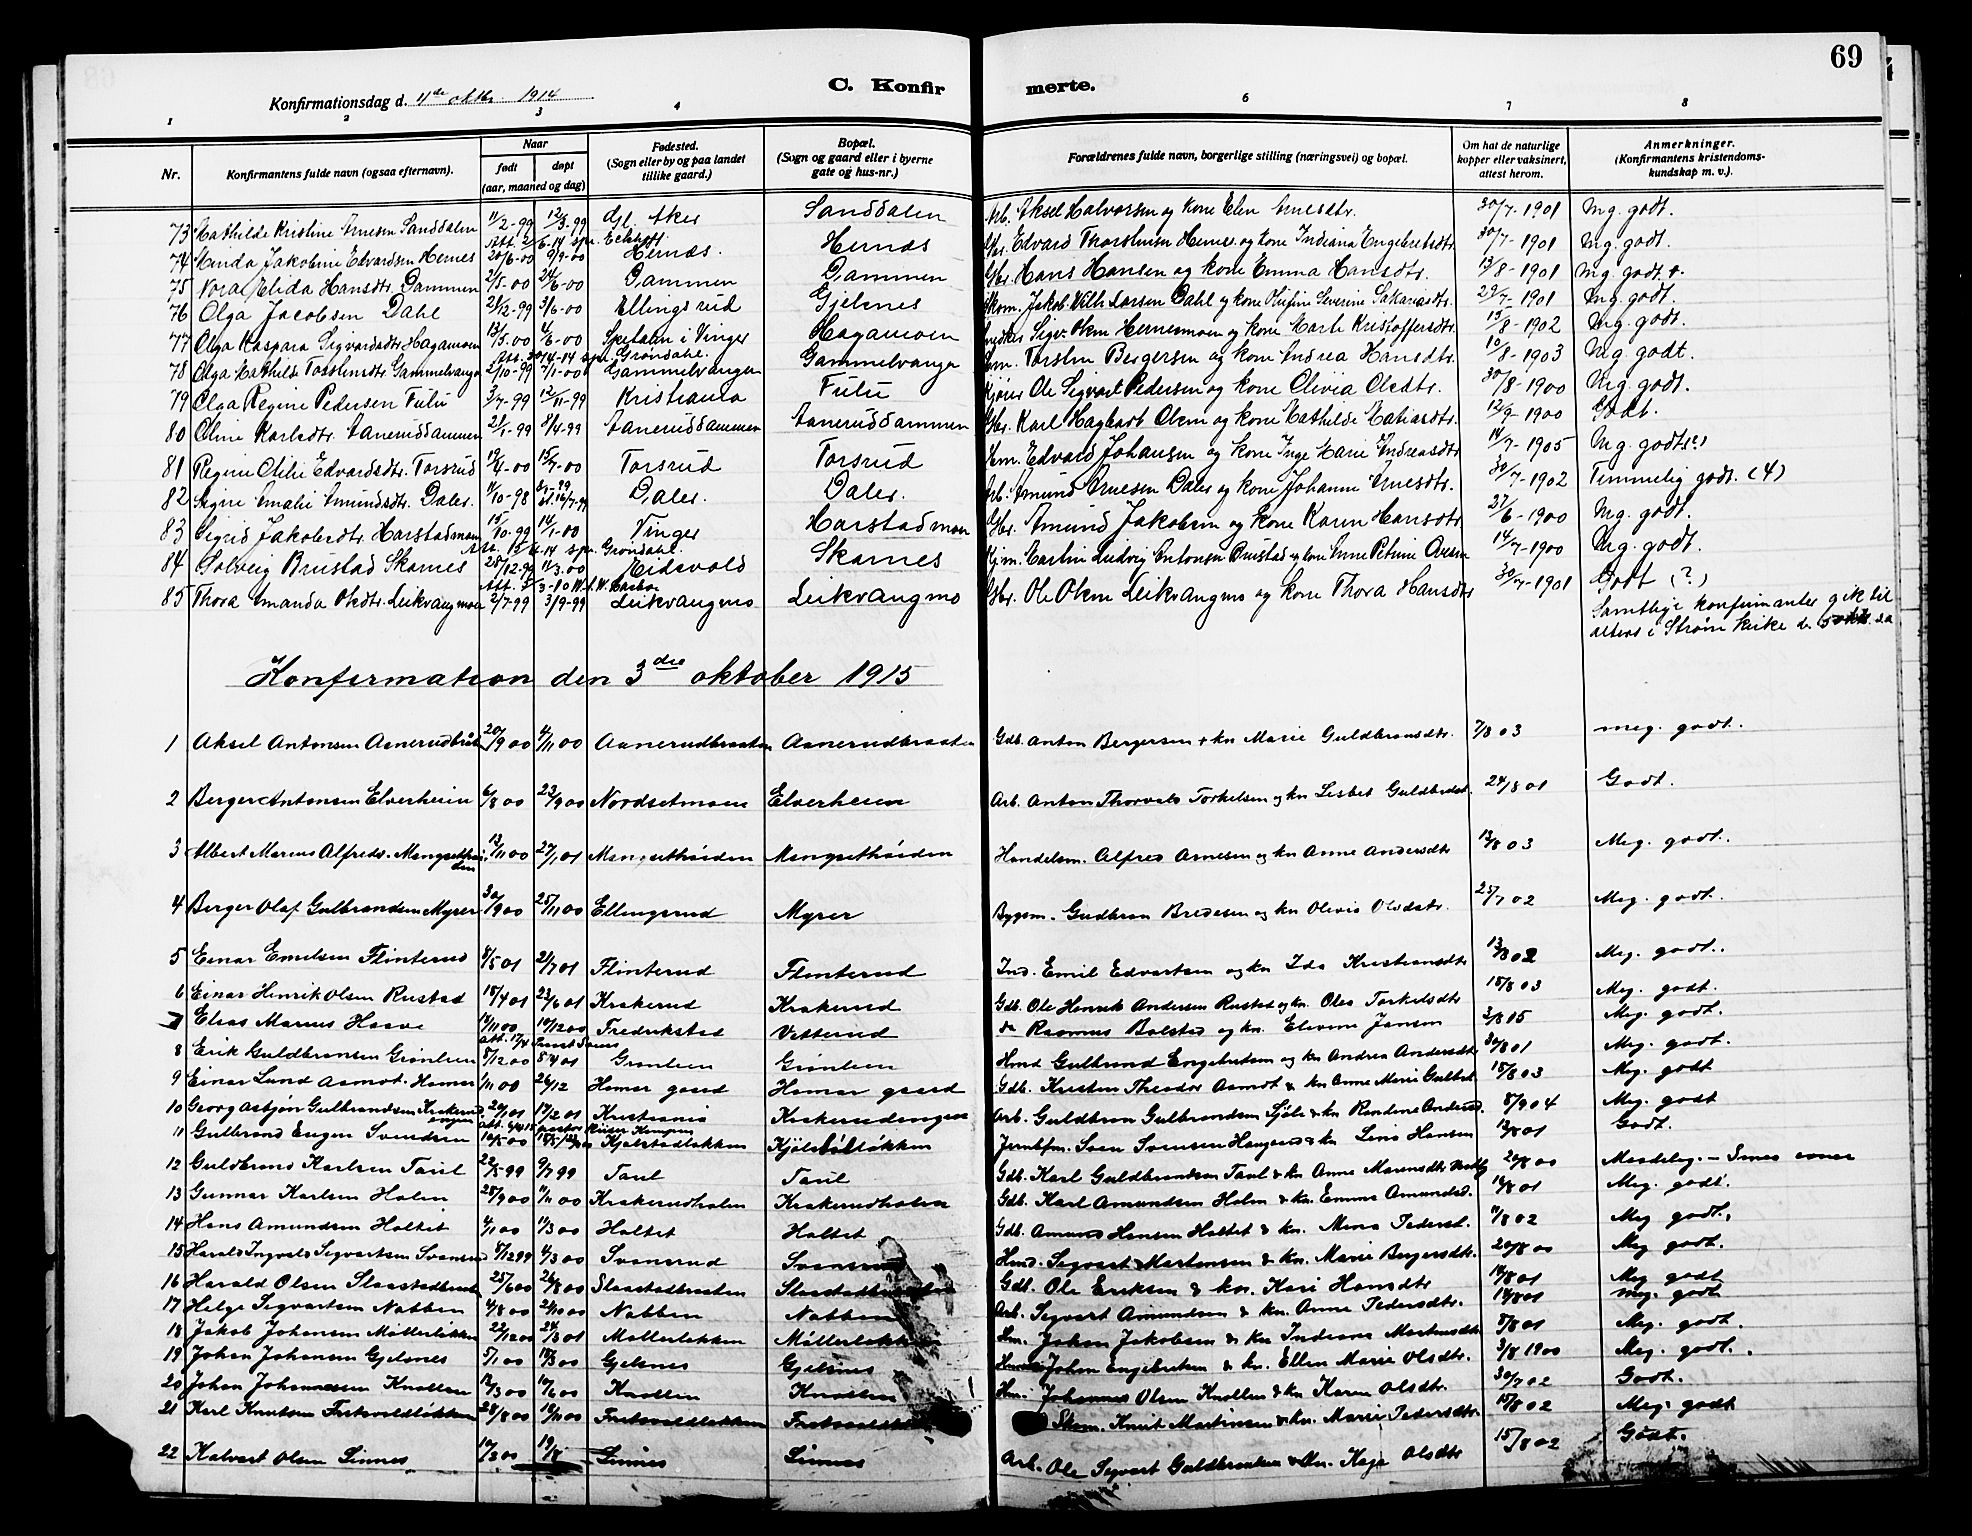 69
C. Konfir merte.
Konfirmationsdag d. 11te oktbr. 1914
1 2 3 4 6 7 8
Nr.
Konfirmantens fulde navn (ogsaa efternavn).
Naar
født døpt
(aar, maaned og dag)
Fødested.
(Sogn eller by og paa landet
tillike gaard.)
Bopæl.
(Sogn og gaard eller i byerne
gate og hus-nr.)
Forældrenes fulde navn, borgerlige stilling (næringsvei) og bopæl.
Om hat de naturlige
kopper eller vaksinert,
attest herom.
Anmerkninger.
(Konfirmantens kristendoms-
kundskap m. v.).
73 Mathilde Kristine Arnesen Sanddalen 11/2-99 12/3-99 Gl. Aker Sanddalen Arb. Aksel Halvorsen og kone Elen Arnesdtr. 30/7-1901 Mg. godt.
74 Minda Jakobine Edvardsen Hernes 20/6-00 9/9-00 Hernæs. Hernæs Gbr. Edvard Thorstensen Hernes og kone Indiana Engebretsdtr 30/7-1901 Mg. godt.
75 Nora Elida Hansdtr. Dammen 2/5-00 24/6-00 Dammen Dammen Gbr. Hans Hansen og kone Emma Hansdtr. 13/8-1901 Mg. godt.
76 Olga Jacobsen Dahl 21/12-99 3/6-00 Ellingsrud Gjelsnes Skom. Jakob Vilh. Larsen Dahl og kone Olefine Severine Sakariasdtr. 29/7-1901 Mg. godt.
77 Olga Kaspara Sigvardsdtr. Hagamoen 13/3-00 4/6-00 Spetalen i Vinger Hagamoen Sigv. Olsen Hernesmoen og kone Marte Kristoffersdtr. 15/8-1902 Mg. godt.
78 Olga Mathilde Torstensdtr. Gammelvangen 2/10-99 7/1-00 Gammelvangen Gammelvangen Torsten Bergersen og kone Andrea Hansdtr. 10/8-1903 Mg. godt.
79 Olga Regine Pedersen Fulu 3/7-99 12/11-99 Kristiania Fulu Kjører Ole Sigvart Pedersen og kone Olivia Olsdtr. 30/8-1900 Mg. godt.
80 Oline Karlsdtr. Aaneruddammen 21/1-99 8/4-99 Aaneruddammen Aaneruddammen Gbr. Karl Hagbart Olsen og kone Mathilde Matiasdtr. 12/9-1900 Godt.
81 Regine Otilie Edvardsdtr. Torsrud 19/4-00 15/7-00 Torsrud Torsrud Edvard Johansen og kone Inge Marie Andreasdtr. 14/7-1905 Mg. godt (?)
82 Signe Amalie Amundsdtr. Daler. 11/10-98 Daler. Daler. Arb. Amund Arnesen Daler og kone Johanne Arnesdtr. 30/7-1902 Temmelig godt. (4)
83 Sigrid Jakobsdtr. Harstadmoen 15/10-99 14/1-00 Vinger Harstadmoen Gbr. Amund Jakobsen og kone Karen Hansdtr. 27/6-1900 Mg. godt.
84 Solveig Brustad Skarnes 28/12-99 11/3-00 Eidsvold Skarnes Kjm. Martin Ludvig Antonsen Brustad og kone Anne Petrine 14/7-1900 Mg. godt.
85 Thora Amanda Olsdtr. Leikvangmoen 2/7-99 3/9-99 Leikvangmo Leikvangmo Gbr. Ole Olsen Leikvangmo og kone Thora Hansdtr 30/7-1901 Godt (?)
Samtlige konfirmanter gik til
alters i Strøm kirke d.
Konfirmation den 3die oktober 1915
1 Aksel Antonsen Aanerudbråten 20/9 00 4/11 00 Aanerudbraaten Aanerudbraaten Gdb. Anton Bergersen + kn Marie Guldbransdtr. 7/8 03 meg. godt.
2 Berger Antonsen Elverheim 6/8 00 23/9 00 Nordsetmoen Elverheim Arb. Anton Thorvald Torkelsen og kn Lisbet Guldbrdst. 24/8 01 Godt.
3 Albert Marius Alfreds. Mangsethøiden 13/11 00 27/1 01 Mangsethøiden Mangsethøiden Handelsm. Alfred Arnesen og kn Anne Andersdtr 13/8 03 Meg. godt.
4 Berger Olaf Gulbrandsen Myrer 30/9 00 25/11 00 Ellingsrud Myrer Bygsm. Gudbran Bredesen og kn Olivia Olsdatr. 25/7 02 Meg. godt.
5 Einar Emilsen Flinterud 8/5 01 21/7 01 Flinterud Flinterud Ind. Emil Edvartsen og kn Ida Kristiansdtr 13/8 02 Meg. godt.
6 Einar Henrik Olsen Rustad 15/4 01 23/6 01 Krakerud Krakerud Gdb. Ole Henrik Andersen Rustad og kn. Olea Torkelsdtr 15/8 03 Meg. godt.
7 Elias Marius Haave 14/11 00 10/12 00 Fredrikstad Vetterud do Rasmus Bolstad og kn. Elevine Jansen 3/8 15 Meg. godt.
8 Erik Guldbransen Grønlien 8/12 00 8/4 01 Grønlien Grønlien Hmd Gulbrand Engebretsen og kn Andrea Andersdtr 30/8 01 Meg. godt.
9 Einar Lund Asmot. Homer 1/11 00 26/12 Homer gaard Homer gaard Gdb. Kristen Theodor Asmot & kn. Anne Marie Gulbr. 15/8 03 Meg. godt
10 Georg Asbjør Gulbrandsen Krakerudengen 20/1 01 17/2 01 Kristiania Krakerudengen Arb. Guldbran Gulbrandsen Sjøli & kn. Randine Andersd. 8/9 04 Meg. godt
11 Gulbrand Eugen Svendsen 14/5 00 Kjølstadløkken Kjølstadløkken Jernbfm. Sven Svensen Haugaard & kn Lina Hansen 13/8 01 Godt.
12 Guldbrand Karlsen Taul 22/5 99 9/7 99 Taul Taul Gdb. Karl Guldbrandsen Taul & kn Anne Marensdtr 20/8 00 Maadelig. – Smaa evner
13 Gunnar Karlsen Holen 28/9 00 11/11 00 Krakerudholen Krakerudholen Gdb. Karl Amundsen Holen & kn. Emma Amundsd. 14/8 01 Meg. godt.
14 Hans Amundsen Holtet 4/1 00 11/3 00 Holtet Holtet Gdb. Amund Hansen Holtet & kn. Mina Pederst. 11/8 02 Meg godt.
15 Harald Ingvald Segvartsen Svensrud 8/12 99 4/3 00 Svensrud Svensrud Hmd. Segvart Martensen & kn. Marie Bergersdtr. 20/8 00 Meg godt.
16 Harald Olsen Slaastadbraaten 25/6 00 26/8 00 Slaastadbraaten Slaastadbraaten Gdb. Ole Eriksen & kn. Kari Hansdtr 14/8 01 Meg godt
17 Helge Segvartsen Nabben 4/8 00 21/10 00 Nabben Nabben Arb. Segvart Amundsen & kn. Anne Pedersdtr. 14/8 01 meg. godt
18 Jakob Johansen Møllerløkken 22/12 00 24/3 01 Møllerløkken Møllerløkken Johan Jakobsen & kn Indiana Martensdtr 8/8 01 Meg. godt.
19 Johan Johansen Gjelsnes 5/1 00 18/3 00 Gjelsnes Gjelsnes Johan Engebretsen & kn. Ellen Marie Olsdtr. 3/8 1900 Meg. godt.
20 Johan Johannesen Knollen 13/3 00 10/6 00 Knollen Knollen Johannes Olsen Knollen & kn Karen Olsdtr. 30/7 02 Godt.
21 Karl Knutsen Fredsvoldløkken 28/8 00 18/11 00 Skom. Knut Martinsen & kn. Marie Pedersdtr. 15/8 02 Meg. godt
22 Kalvart Olsen Sinnes 10/3 00 Sinnes Sinnes Arb. Ole Segvart Guldbransen & kn. Kaja Olsdtr 15/8 02 Godt.